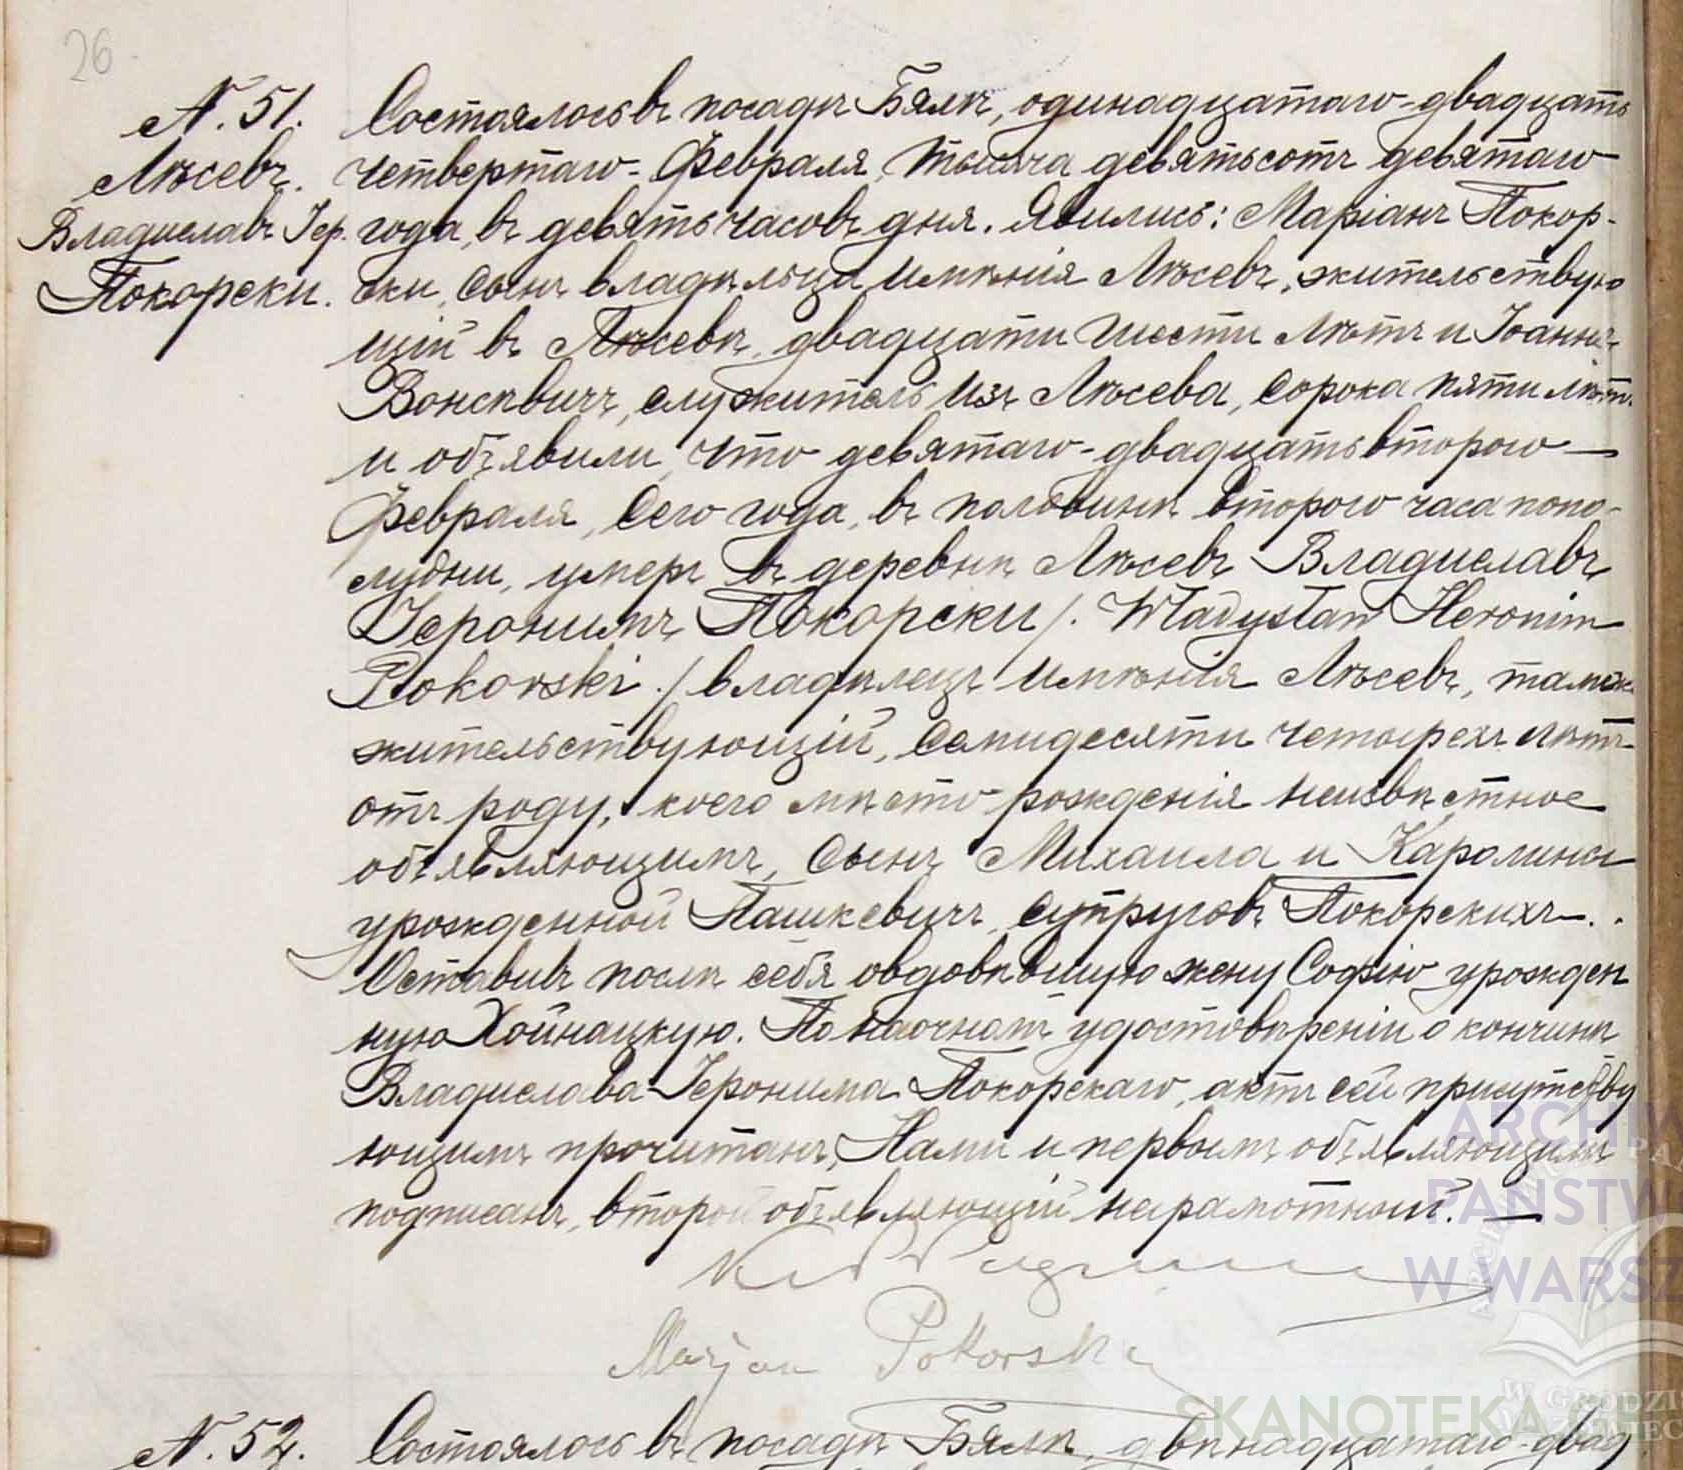 26
N. 51.
Лѣсевъ.
Владиславъ Іер.
Покорски.
Состоялось въ посадѣ Бялѣ, одинадцатаго-двадцать
четвертаго- Февраля, тысяча девятьсотъ девятаго
года, въ девять часовъ дня. Явились: Маріанъ Покор-
ски, сынъ владѣльца имѣнія Лѣсевъ, жительствую
щій въ Лѣсевѣ, двадцати шести лѣтъ и Іоаннъ
служитель изъ Лѣсева, сорока пяти лѣтъ
и объявили, что девятаго-двадцать втораго —
Февраля, сего года, въ половинѣ второго часа попо-
лудни, умеръ въ деревнѣ Лѣсевъ Владиславъ
Іеронимъ Покорски /. Władysław Heronim
Pokorski ./ владѣлецъ имѣнія Лѣсевъ, тамже
жительствующій, семидесяти четырехъ лѣтъ
отъ роду, коего мѣсто рожденія неизвѣстное
объявляющимъ, сынъ Михаила и Каролины
урожденной Пашкевичъ, супруговъ Покорскихъ—.
Оставивъ послѣ себя овдовѣвшую жену Софію урожден
ную Хойнацкую. По наочномъ удостовѣреніи о кончинѣ
Владислава Іеронима Покорскаго, актъ сей присутству
ющимъ прочитанъ, Нами и первымъ объявляющимъ
подписанъ, второй объявляющій неграмотный. —
Marjan Pokorski
N. 52.
Состоялось въ посадѣ Бялѣ, двѣнадцатаго-двад
ARCHIW
PAŃSTW
W WARSZ
SKANOTEKA
W GRODZIS
MAZOWIEC